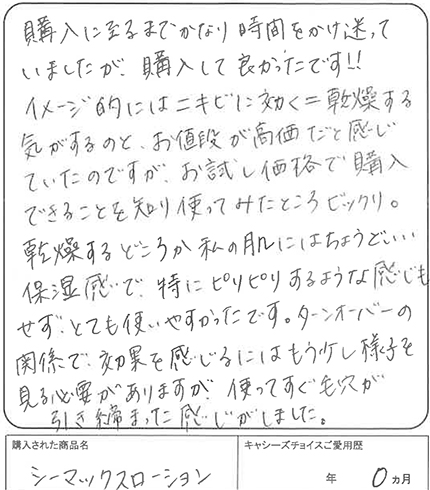 購入に至るまでかなり時間をかけ迷って
いましたが、購入して良かったです!!
イメージ的にはニキビに効く=乾燥する
気がするのと、お値段が高価だと感じ
ていたのですが、お試し価格で購入
できることを知り使ってみたところビックリ。
乾燥するどころか私の肌にはちょうどいい
保湿感で、特にピリピリするような感じも
せず、とても使いやすかったです。ターンオーバーの
関係で、効果を感じるにはもう少し様子を
見る必要がありますが、使ってすぐ毛穴が
引き締まった感じがしました。
購入された商品名
シーマックスローション
キャシーズチョイスご愛用歴
年 0 ヵ月